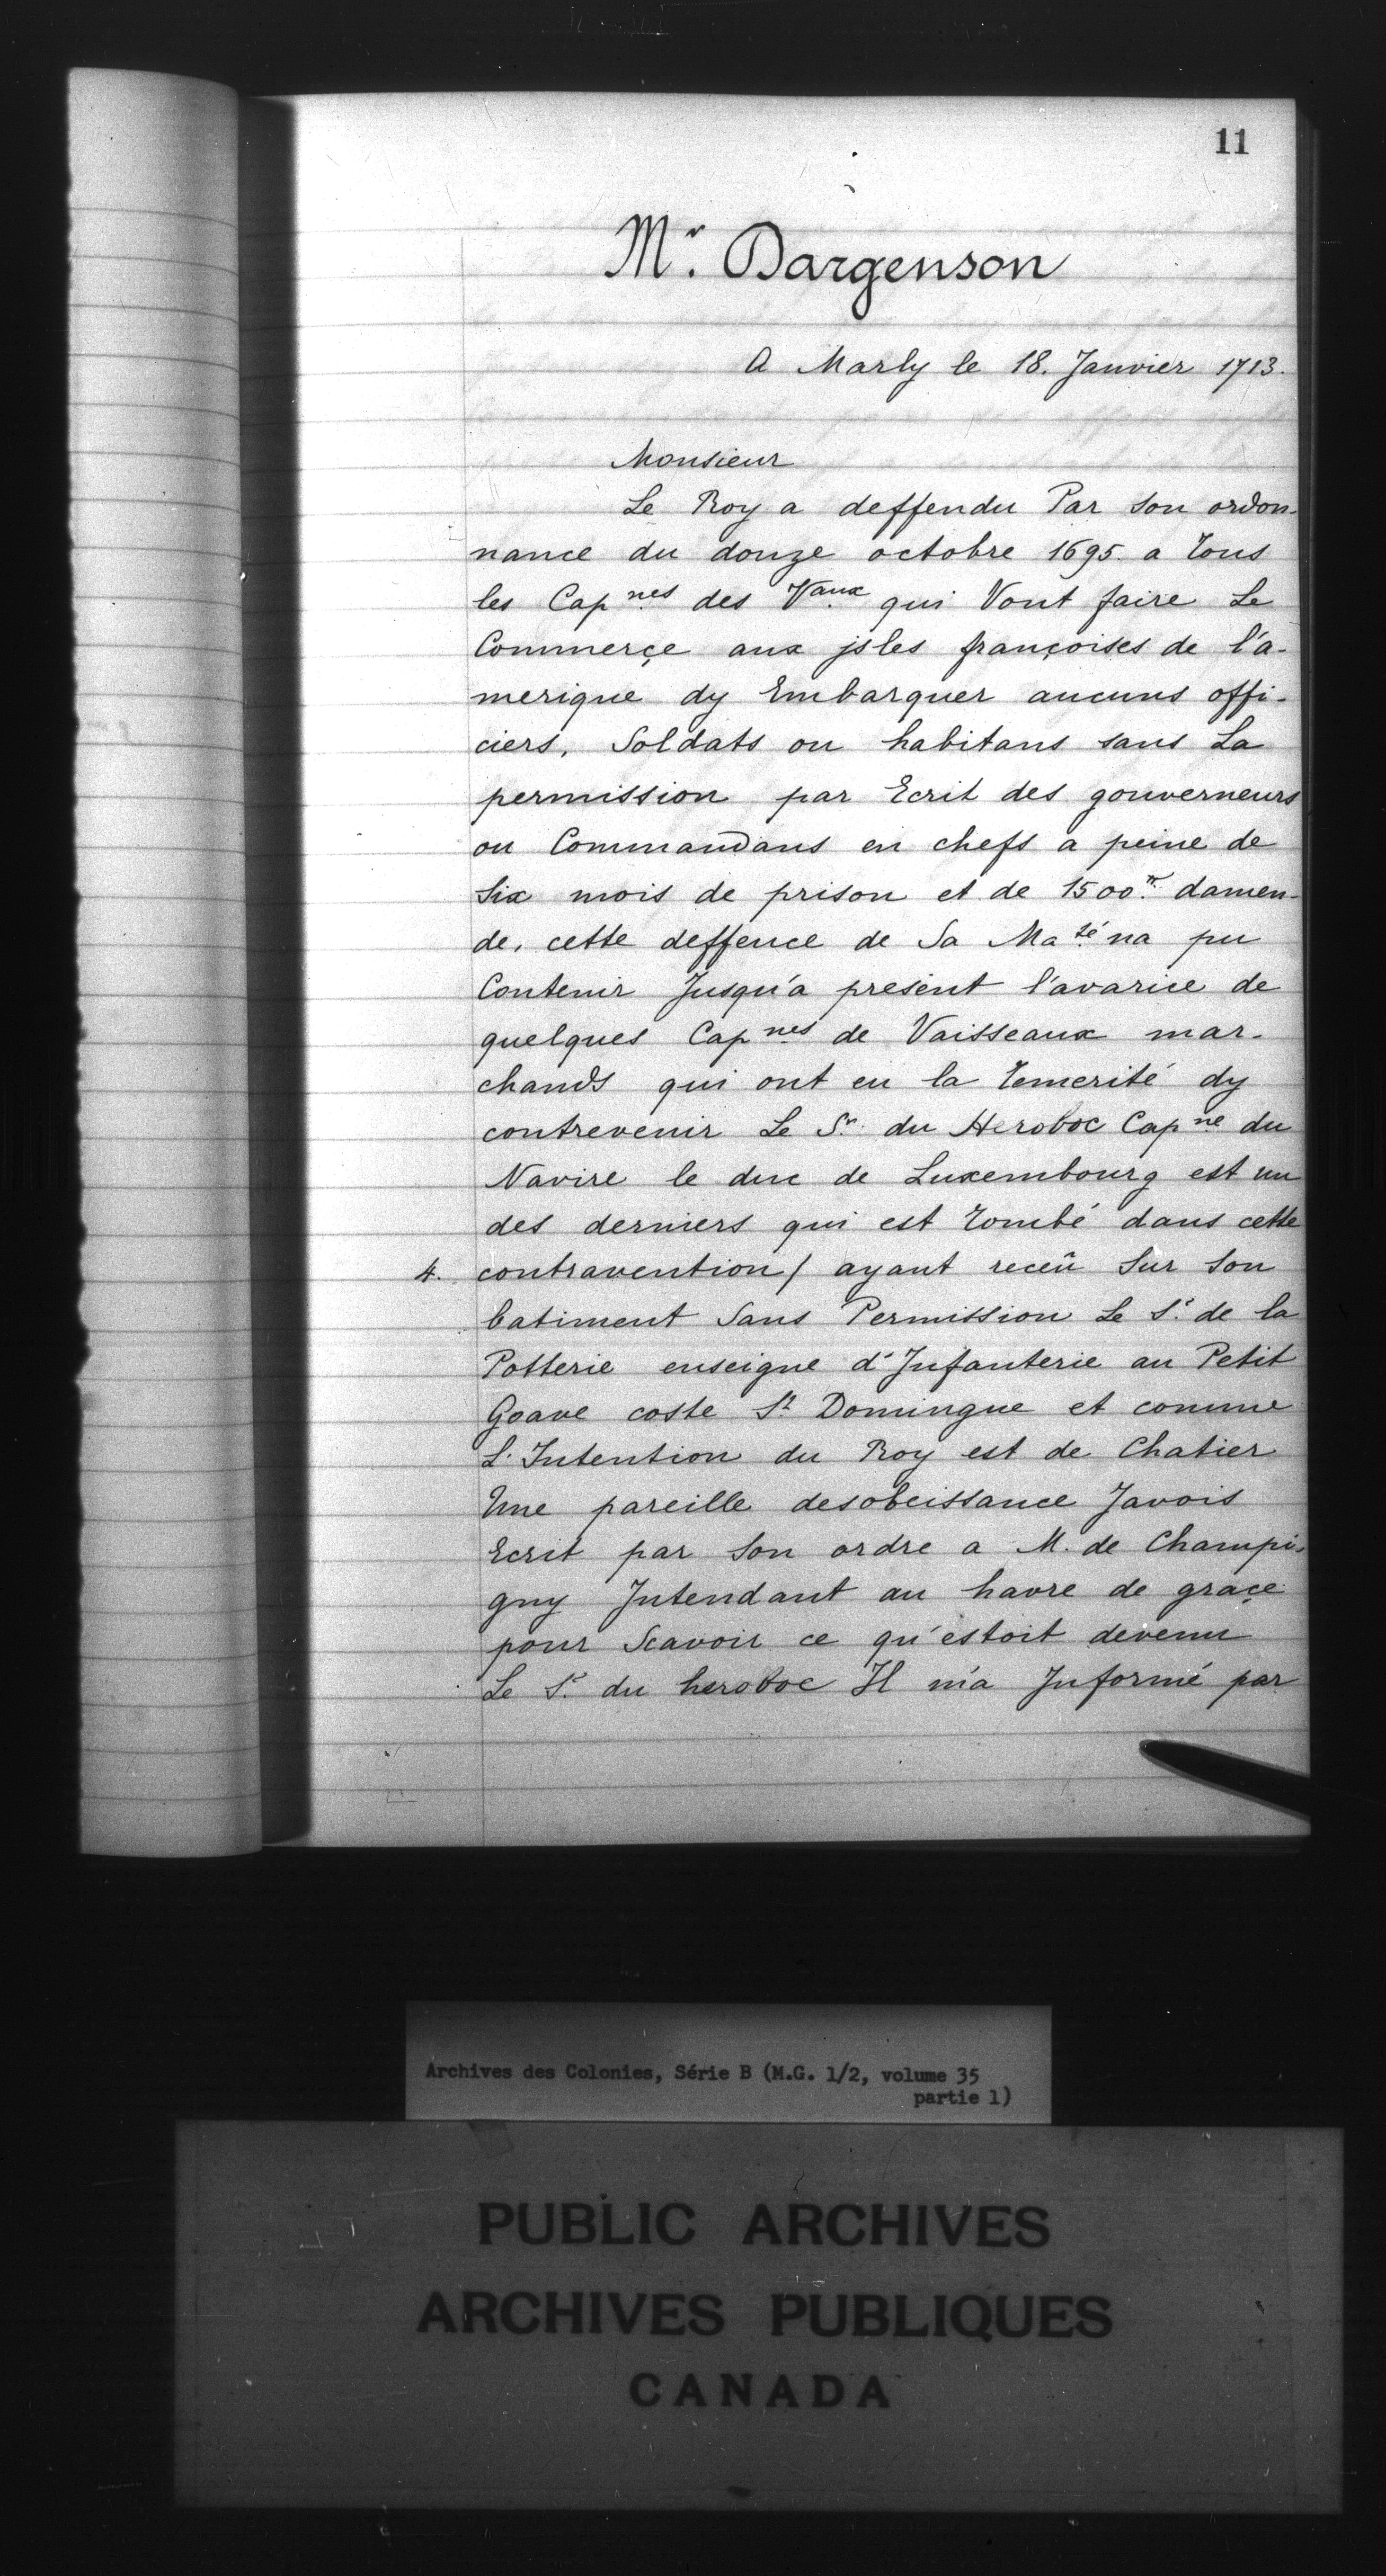 11
Mr. Dargenson
A Marly le 18. Janvier 1713.
Monsieur
Le Roy a deffendu Par son ordon-
nance du douze octobre 1695. a tous
les Capnes des Vaux qui Vont faire Le
Commerçe aux jsles françoises de l'a-
merique dy Embarquer aucuns offi-
ciers, Soldats ou habitans sans La
permission par Ecrit des gouverneurs
ou Commandans en chefs a peine de
Six mois de prison et de 1500tt. damen-
de, cette deffence de Sa Maté na pu
Contenir Jusqu'a present l'avarice de
quelques Capnes de Vaisseaux mar-
chands qui ont eu la temerité dy
contrevenir Le Sr. du Heroboc Capne du
Navire le duc de Luxembourg est un
des derniers qui est tombé dans cette
4. contravention/ ayant receû Sur Son
batiment Sans Permission Le Sr. de la
Potterie enseigne d'Infanterie au Petit
Goave coste St. Domingue et comme
L'Intention du Roy est de Chatier
Une pareille desobeissance Javois
Ecrit par Son ordre a M. de Champi-
gny Intendant au havre de graçe
pour Scavoir ce qu'estoit devenu
Le Sr. du heroboc Il m'a Informé par
Archives des Colonies, Série B (M.G. 1/2, volume 35
partie 1)
PUBLIC ARCHIVES
ARCHIVES PUBLIQUES
CANADA